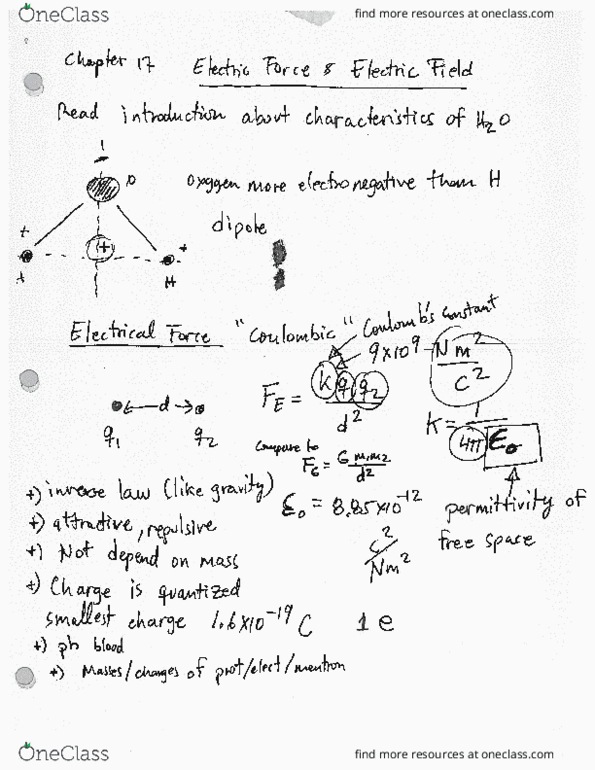 OneClass
find more resources at oneclass.com
Chapter 17 Electric Force & Electric Field
Read introduction about characteristics of H2O
O
oxygen more electronegative than H
dipole
+
+
+
H
Electrical Force "Coulombic" Coulomb's constant
9x10^9 Nm^2/C^2
F_E = k q1 q2 / d^2
k = 1/4π ε0
d
q1 q2
Compare to
F_G = G m1m2 / d^2
+) inverse law (like gravity)
ε0 = 8.85x10^-12 C^2/Nm^2
permittivity of
free space
+) attractive, repulsive
+) Not depend on mass
+) Charge is quantized
smallest charge 1.6x10^-19 C 1e
+) ph blood
+) Masses/charges of prot/elect/
OneClass
find more resources at oneclass.com